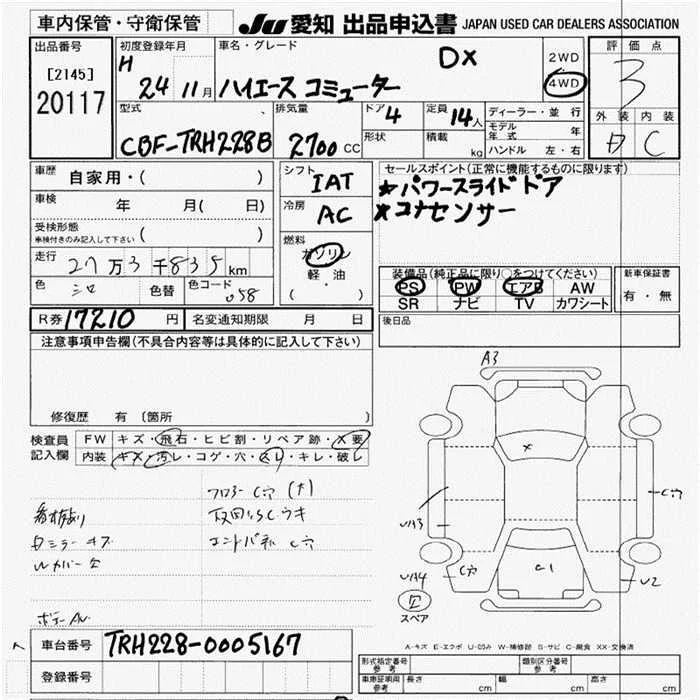 車内保管・守衛保管
JU 愛知 出品申込書 JAPAN USED CAR DEALERS ASSOCIATION
出品番号
[2145]
20117
初度登録年月
H 24 11月
車名・グレード
ハイエース コミューター DX
2WD
4WD
評価点
3
外装 内装
C
型式
CBF-TRH228B
排気量
2700 CC
ドア 4
形状
定員 14人
積載 kg
ディーラー・並行
モデル年式 年
ハンドル 左・右
車歴 自家用・( )
車検 年 月( 日)
受検形態
車検付きのみ記入して下さい ( )
走行 27万3千835km
色 シロ 色替 色コード 058
シフト IAT
冷房 AC
燃料
ガソリン
軽・油
( )
セールスポイント(正常に機能するものに限ります)
★パワースライドドア
★コナセンサー
装備品(純正品に限り○をつけてください)
PS PW エアB AW
SR ナビ TV カワシート
新車保証書
有・無
R券 17210 円 名変通知期限 月 日
後日品
注意事項申告欄(不具合内容等は具体的に記入して下さい)
修復歴 有 〔箇所
検査員記入欄
FW キズ・飛石・ヒビ割・リペア跡・X要
内装 キズ・汚レ・コゲ・穴・スレ・キレ・破レ
フロアー C穴 (大)
ミラー キズ
カバー
C穴
ボデー
A3
X
C穴
A4
C穴
C1
U2
スペア
A-キズ E-エクボ U-凹み W-補修跡 S-サビ C-腐食 XX-交換済
車台番号 TRH228-0005167
登録番号
形式指定番号 参考
類別区分番号 参考
車庫証明用 参考 長さ cm 幅 cm 高さ cm